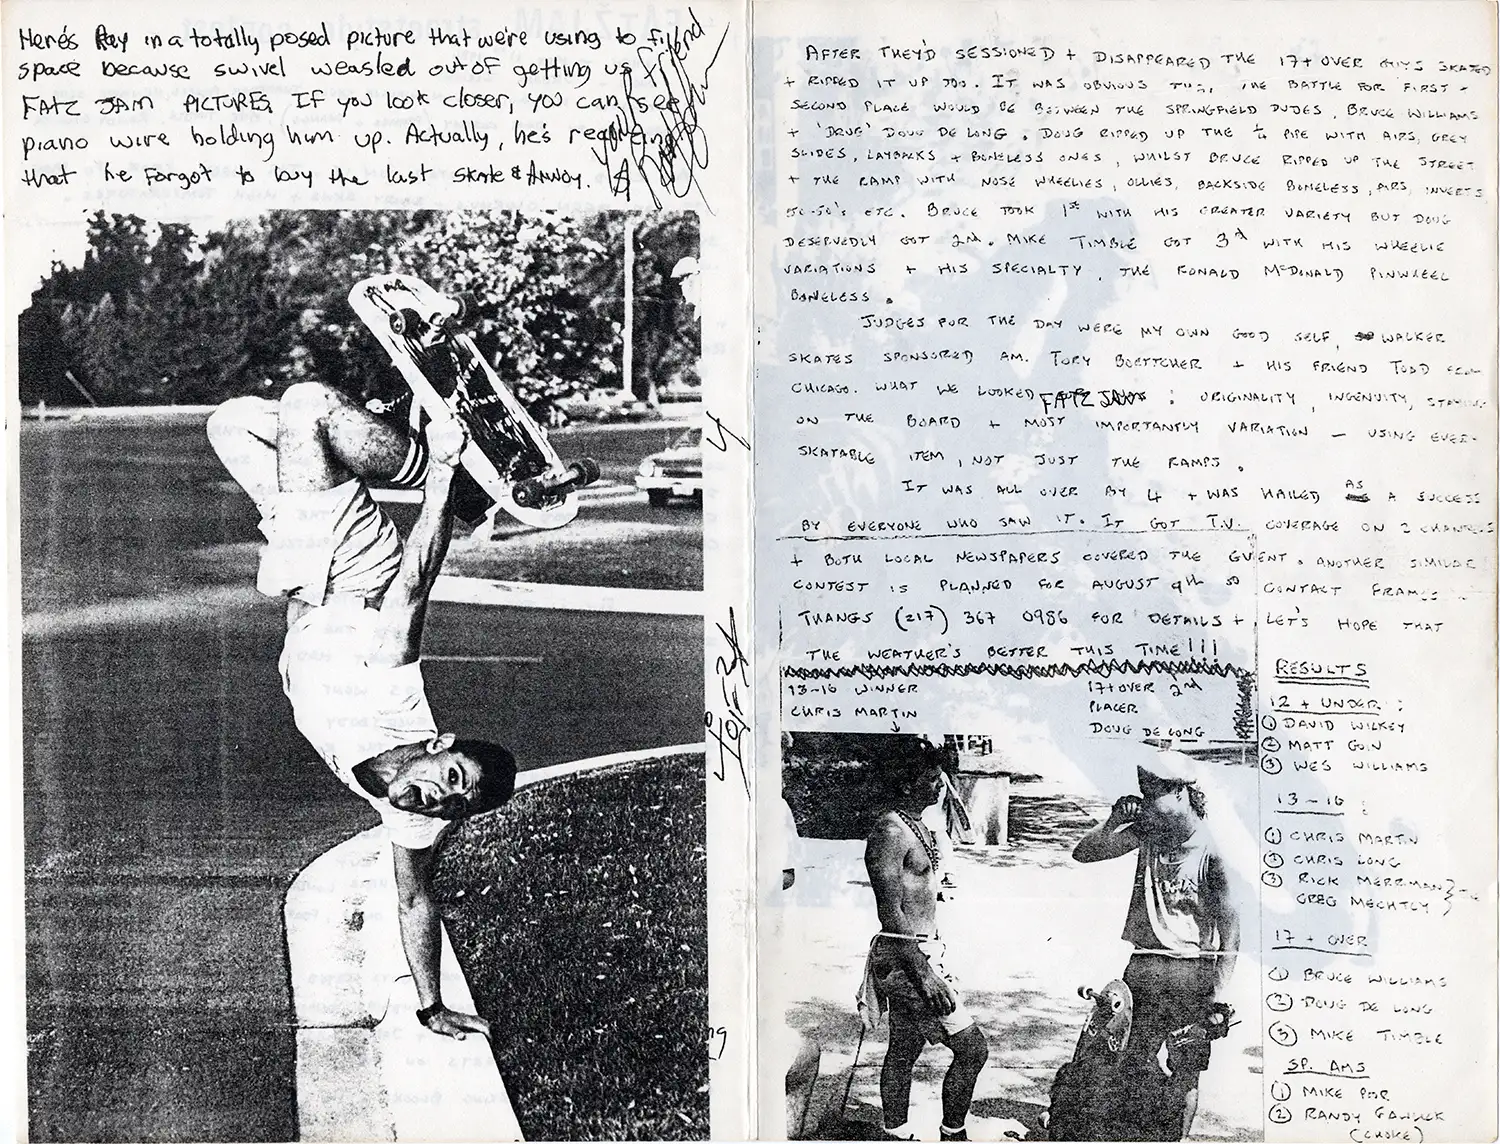 Here's Ray in a totally posed picture that we're using to fill
space because swivel weasled out of getting us
FATZ JAM PICTURES. If you look closer, you can see
piano wire holding him up. Actually, he's realizing
that he forgot to buy the last Skate & Annoy.
Your friend
AFTER THEY'D SESSIONED + DISAPPEARED THE 17 + OVER GUYS SKATED
+ RIPPED IT UP TOO. IT WAS OBVIOUS THE BATTLE FOR FIRST +
SECOND PLACE WOULD BE BETWEEN THE SPRINGFIELD DUDES, BRUCE WILLIAMS
+ 'DRUG' DOUG DE LONG. DOUG RIPPED UP THE 1/4 PIPE WITH AIRS, GREY
SLIDES, LAYBACKS + BONELESS ONES, WHILST BRUCE RIPPED UP THE STREET
+ THE RAMP WITH NOSE WHEELIES, OLLIES, BACKSIDE BONELESS, AIRS, INVERTS
50-50's ETC. BRUCE TOOK 1st WITH HIS GREATER VARIETY BUT DOUG
DESERVEDLY GOT 2nd. MIKE TIMBLE GOT 3rd WITH HIS WHEELIE
VARIATIONS + HIS SPECIALTY, THE RONALD McDONALD PINWHEEL
BONELESS.
JUDGES FOR THE DAY WERE MY OWN GOOD SELF, WALKER
SKATES SPONSORED AM. TORY BOETTCHER + HIS FRIEND TODD FROM
CHICAGO. WHAT WE LOOKED FATZ JAM : ORIGINALITY, INGENUITY, STAYING
ON THE BOARD + MOST IMPORTANTLY VARIATION - USING EVERY
SKATABLE ITEM, NOT JUST THE RAMPS.
IT WAS ALL OVER BY 4 + WAS HAILED AS A SUCCESS
BY EVERYONE WHO SAW IT. IT GOT T.V. COVERAGE ON 2 CHANNELS
+ BOTH LOCAL NEWSPAPERS COVERED THE GVENT. ANOTHER SIMILAR
CONTEST IS PLANNED FOR AUGUST 9th SO CONTACT
THANGS (217) 367 0986 FOR DETAILS + LET'S HOPE THAT
THE WEATHER'S BETTER THIS TIME!!!
13-16 WINNER
CHRIS MARTIN
17 + OVER 2nd
PLACER
DOUG DE LONG
RESULTS
12 + UNDER :
① DAVID WILKEY
② MATT GOIN
③ WES WILLIAMS
13-16 :
① CHRIS MARTIN
② CHRIS LONG
③ RICK MERRIMAN
GREG MECHTLY
17 + OVER
① BRUCE WILLIAMS
② DOUG DE LONG
③ MIKE TIMBLE
SP. AMS
① MIKE POR
② RANDY
(CHOKE)